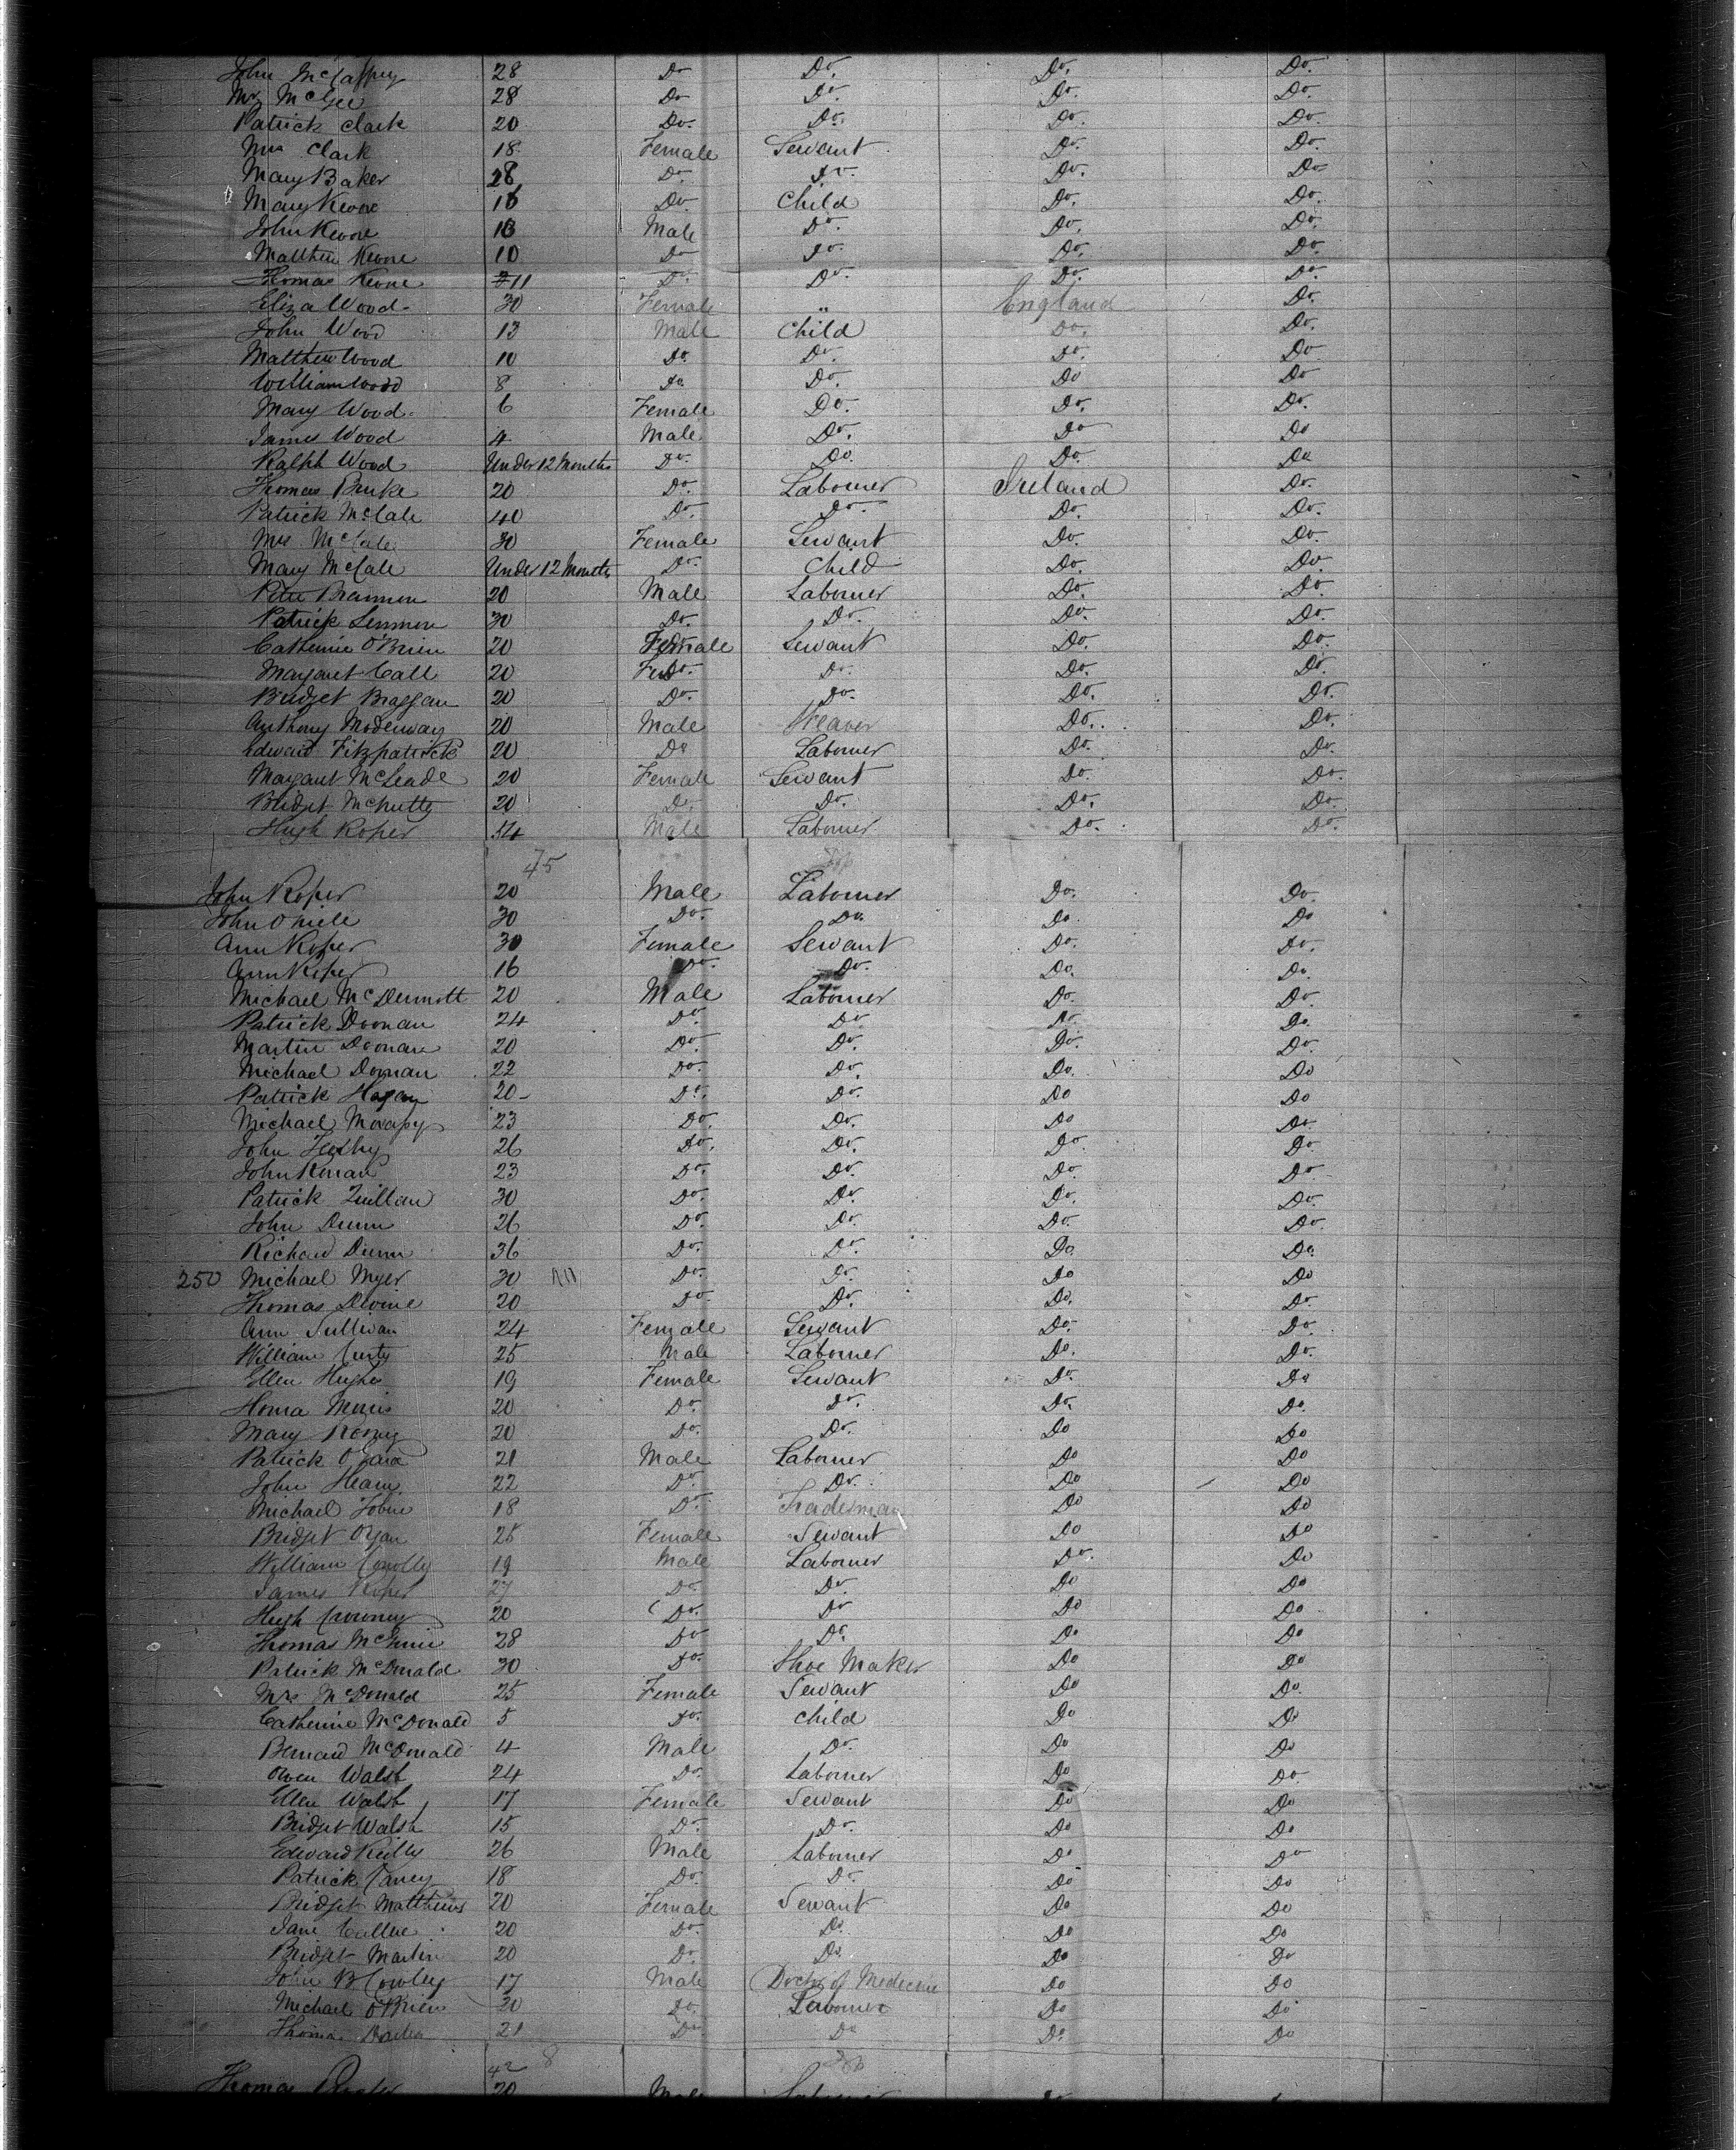 John McCaffrey 28 Do Do. Do. Do.
Mr McGee 28 Do Do. Do. Do.
Patrick Clark 20 Do. Do. Do. Do.
Mrs Clark 18 Female Servant Do. Do.
Mary Baker 28 Do. Do. Do. Do
Mary Keone 16 Do Child Do. Do.
John Keone 13 Male Do. Do. Do.
Matthew Keone 10 Do Do. Do. Do.
Thomas Keone 11 Do. Do. Do. Do.
Eliza Wood 30 Female " England Do.
John Wood 13 Male Child Do. Do.
Matthew Wood 10 Do. Do. Do. Do
William Wood 8 Do Do. Do Do
Mary Wood 6 Female Do. Do. Do.
James Wood 4 Male Do. Do Do
Ralph Wood Under 12 Months Do. Do. Do. Do
Thomas Burke 20 Do. Labourer Ireland Do.
Patrick McCale 40 Do. Do. Do. Do.
Mrs McCale 30 Female Servant Do. Do.
Mary McCale Under 12 Months Do. Child Do. Do.
Peter Brannon 20 Male Labourer Do. Do.
Patrick Lennon 30 Do. Do. Do. Do.
Catherine O'Brien 20 Female Servant Do. Do.
Margaret Call 20 Do. Do. Do. Do.
Bridget 20 Do. Do. Do. Do.
Anthony 20 Male Weaver Do. Do.
Edward Fitzpatrick 20 Do Labourer Do. Do.
Margaret McLeade 20 Female Servant Do. Do.
Bridget McNulty 20 Do. Do. Do. Do.
Hugh Roper 54 Male Labourer Do. Do.
45
John Roper 20 Male Labourer Do. Do.
John O niele 30 Do. Do. Do. Do
Ann Roper 30 Female Servant Do. Do.
Ann Roper 16 Do. Do. Do. Do.
Michael McDermott 20 Male Labourer Do. Do.
Patrick Doonan 24 Do Do Do. Do.
Martin Doonan 20 Do. Do. Do. Do.
Michael Doonan 22 Do. Do. Do. Do
Patrick Hagan 20 Do. Do. Do Do
Michael 23 Do. Do. Do Do.
John 26 Do. Do. Do Do.
John Kenan 23 Do. Do. Do. Do
Patrick Quillan 30 Do. Do. Do. Do.
John Dunn 26 Do. Do. Do. Do.
Richard Dunn 36 Do. Do. Do. Do.
250 Michael Myer 30 Do. Do. Do Do
Thomas Devine 20 Do Do. Do. Do.
Ann Sullivan 24 Female Servant Do. Do.
William 25 Male Labourer Do. Do.
Ellen Hughes 19 Female Servant Do. Do
Honra Morris 20 Do. Do. Do. Do.
Mary 20 Do. Do. Do Do
Patrick O Gara 21 Male Labourer Do Do
John 22 Do. Do. Do Do
Michael 18 Do. Tradesman Do Do
Bridget 25 Female Servant Do Do
William Conolly 19 Male Labourer Do. Do
James Roper 27 Do. Do. Do Do
Hugh 20 Do. Do Do Do
Thomas 28 Do Do. Do Do
Patrick McDonald 30 Do. Shoe Maker Do Do
Mrs McDonald 25 Female Servant Do Do.
Catherine McDonald 5 Do. Child Do Do
Bernard McDonald 4 Male Do. Do Do
Owen Walsh 24 Do. Labourer Do Do
Ellen Walsh 17 Female Servant Do Do
Bridget Walsh 15 Do. Do. Do Do
Edward Reilly 26 Male Labourer Do Do
Patrick 18 Do. Do. Do Do
Bridget Matthews 20 Female Servant Do Do
Jane Cullen 20 Do. Do. Do Do
Bridget Martin 20 Do. Do Do Do
John B Cowley 17 Male Doctor of Medecine Do Do
Michael O'Brien 20 Do. Labourer Do Do
Thomas 21 Do. Do Do. Do
42 8
Thomas 20 Male Labourer